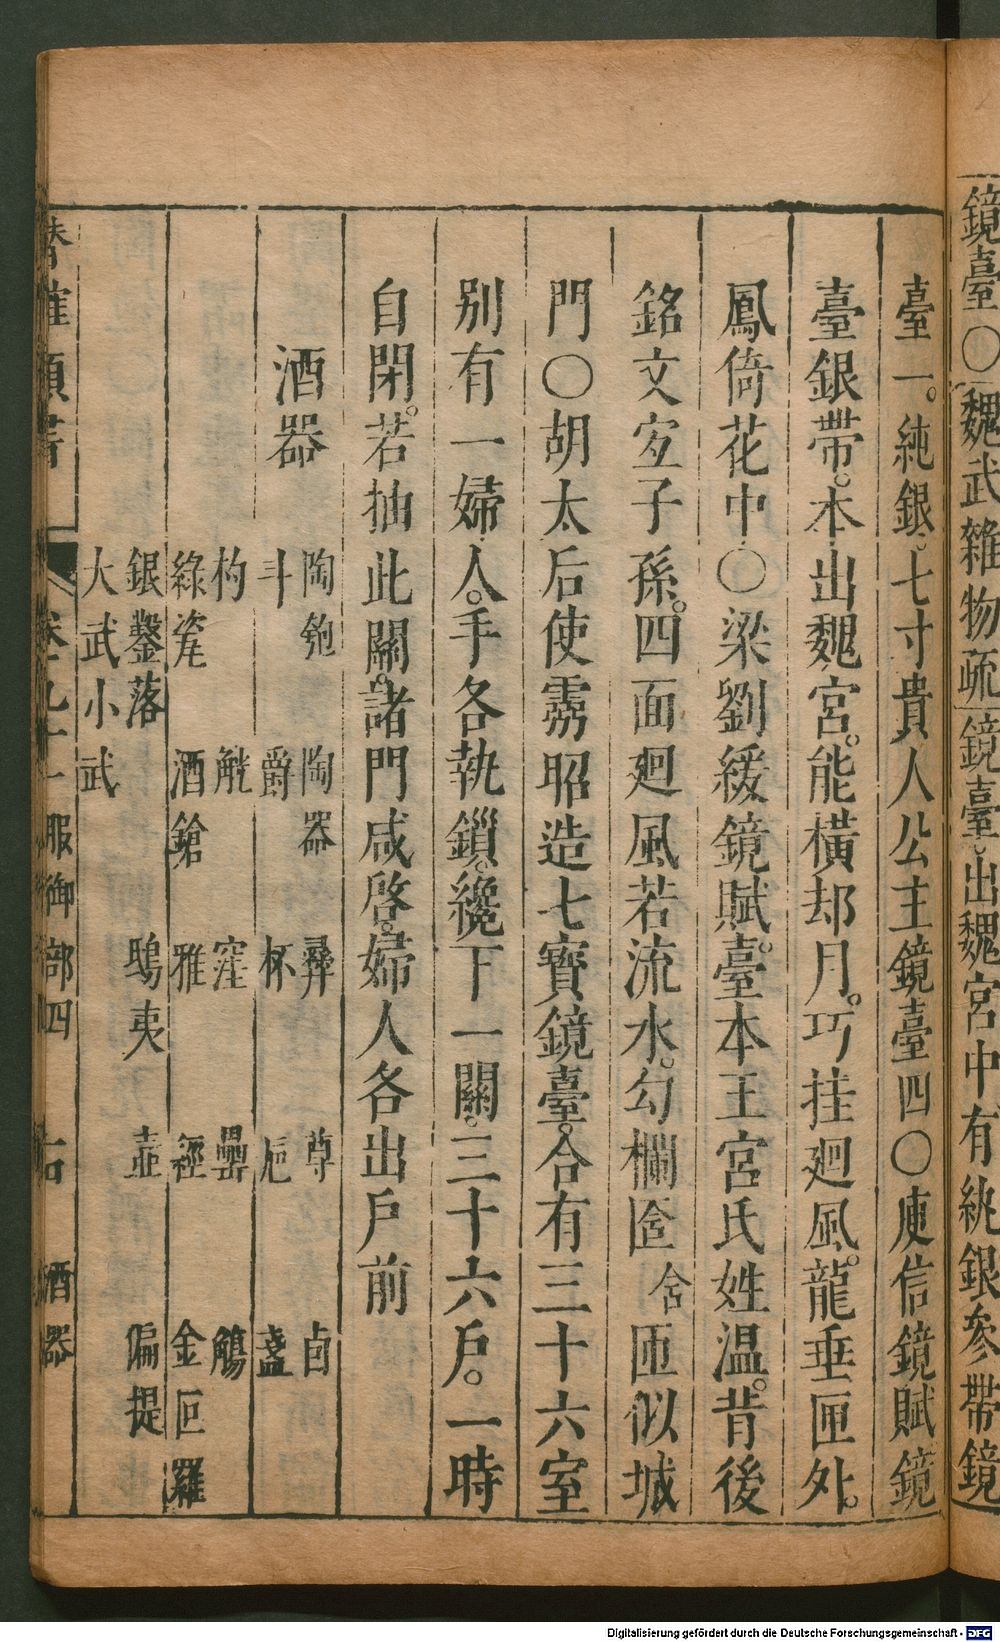 鏡臺〇魏武雜物疏鏡臺。出魏宮中有純銀參帶鏡
臺一。純銀。七寸貴人公主鏡臺四〇庾信鏡賦鏡
臺銀帶。本出魏宮。能橫却月。巧挂廻風。龍垂匣外。
鳳倚花中〇梁劉緩鏡賦。臺本王宮氏姓温。背後
銘文宜子孫。四面廻風若流水。勾欄匼 舍 匝似城
門〇胡太后使靈昭造七寶鏡臺。合有三十六室
别有一婦人。手各執鎖。纔下一關。三十六戶。一時
自閉。若抽此關。諸門咸啓。婦人各出戶前
酒器
陶匏 陶器 彝 尊 卣
斗 爵 杯 巵 盞
杓 觥 窪 罍 觴
綠瓷 酒鎗 雅 經 金叵羅
銀鑿落 鴟夷 壺 偏提
大武小武
卷 服御部四 右 酒器
Digitalisierung gefördert durch die Deutsche Forschungsgemeinschaft - DFG